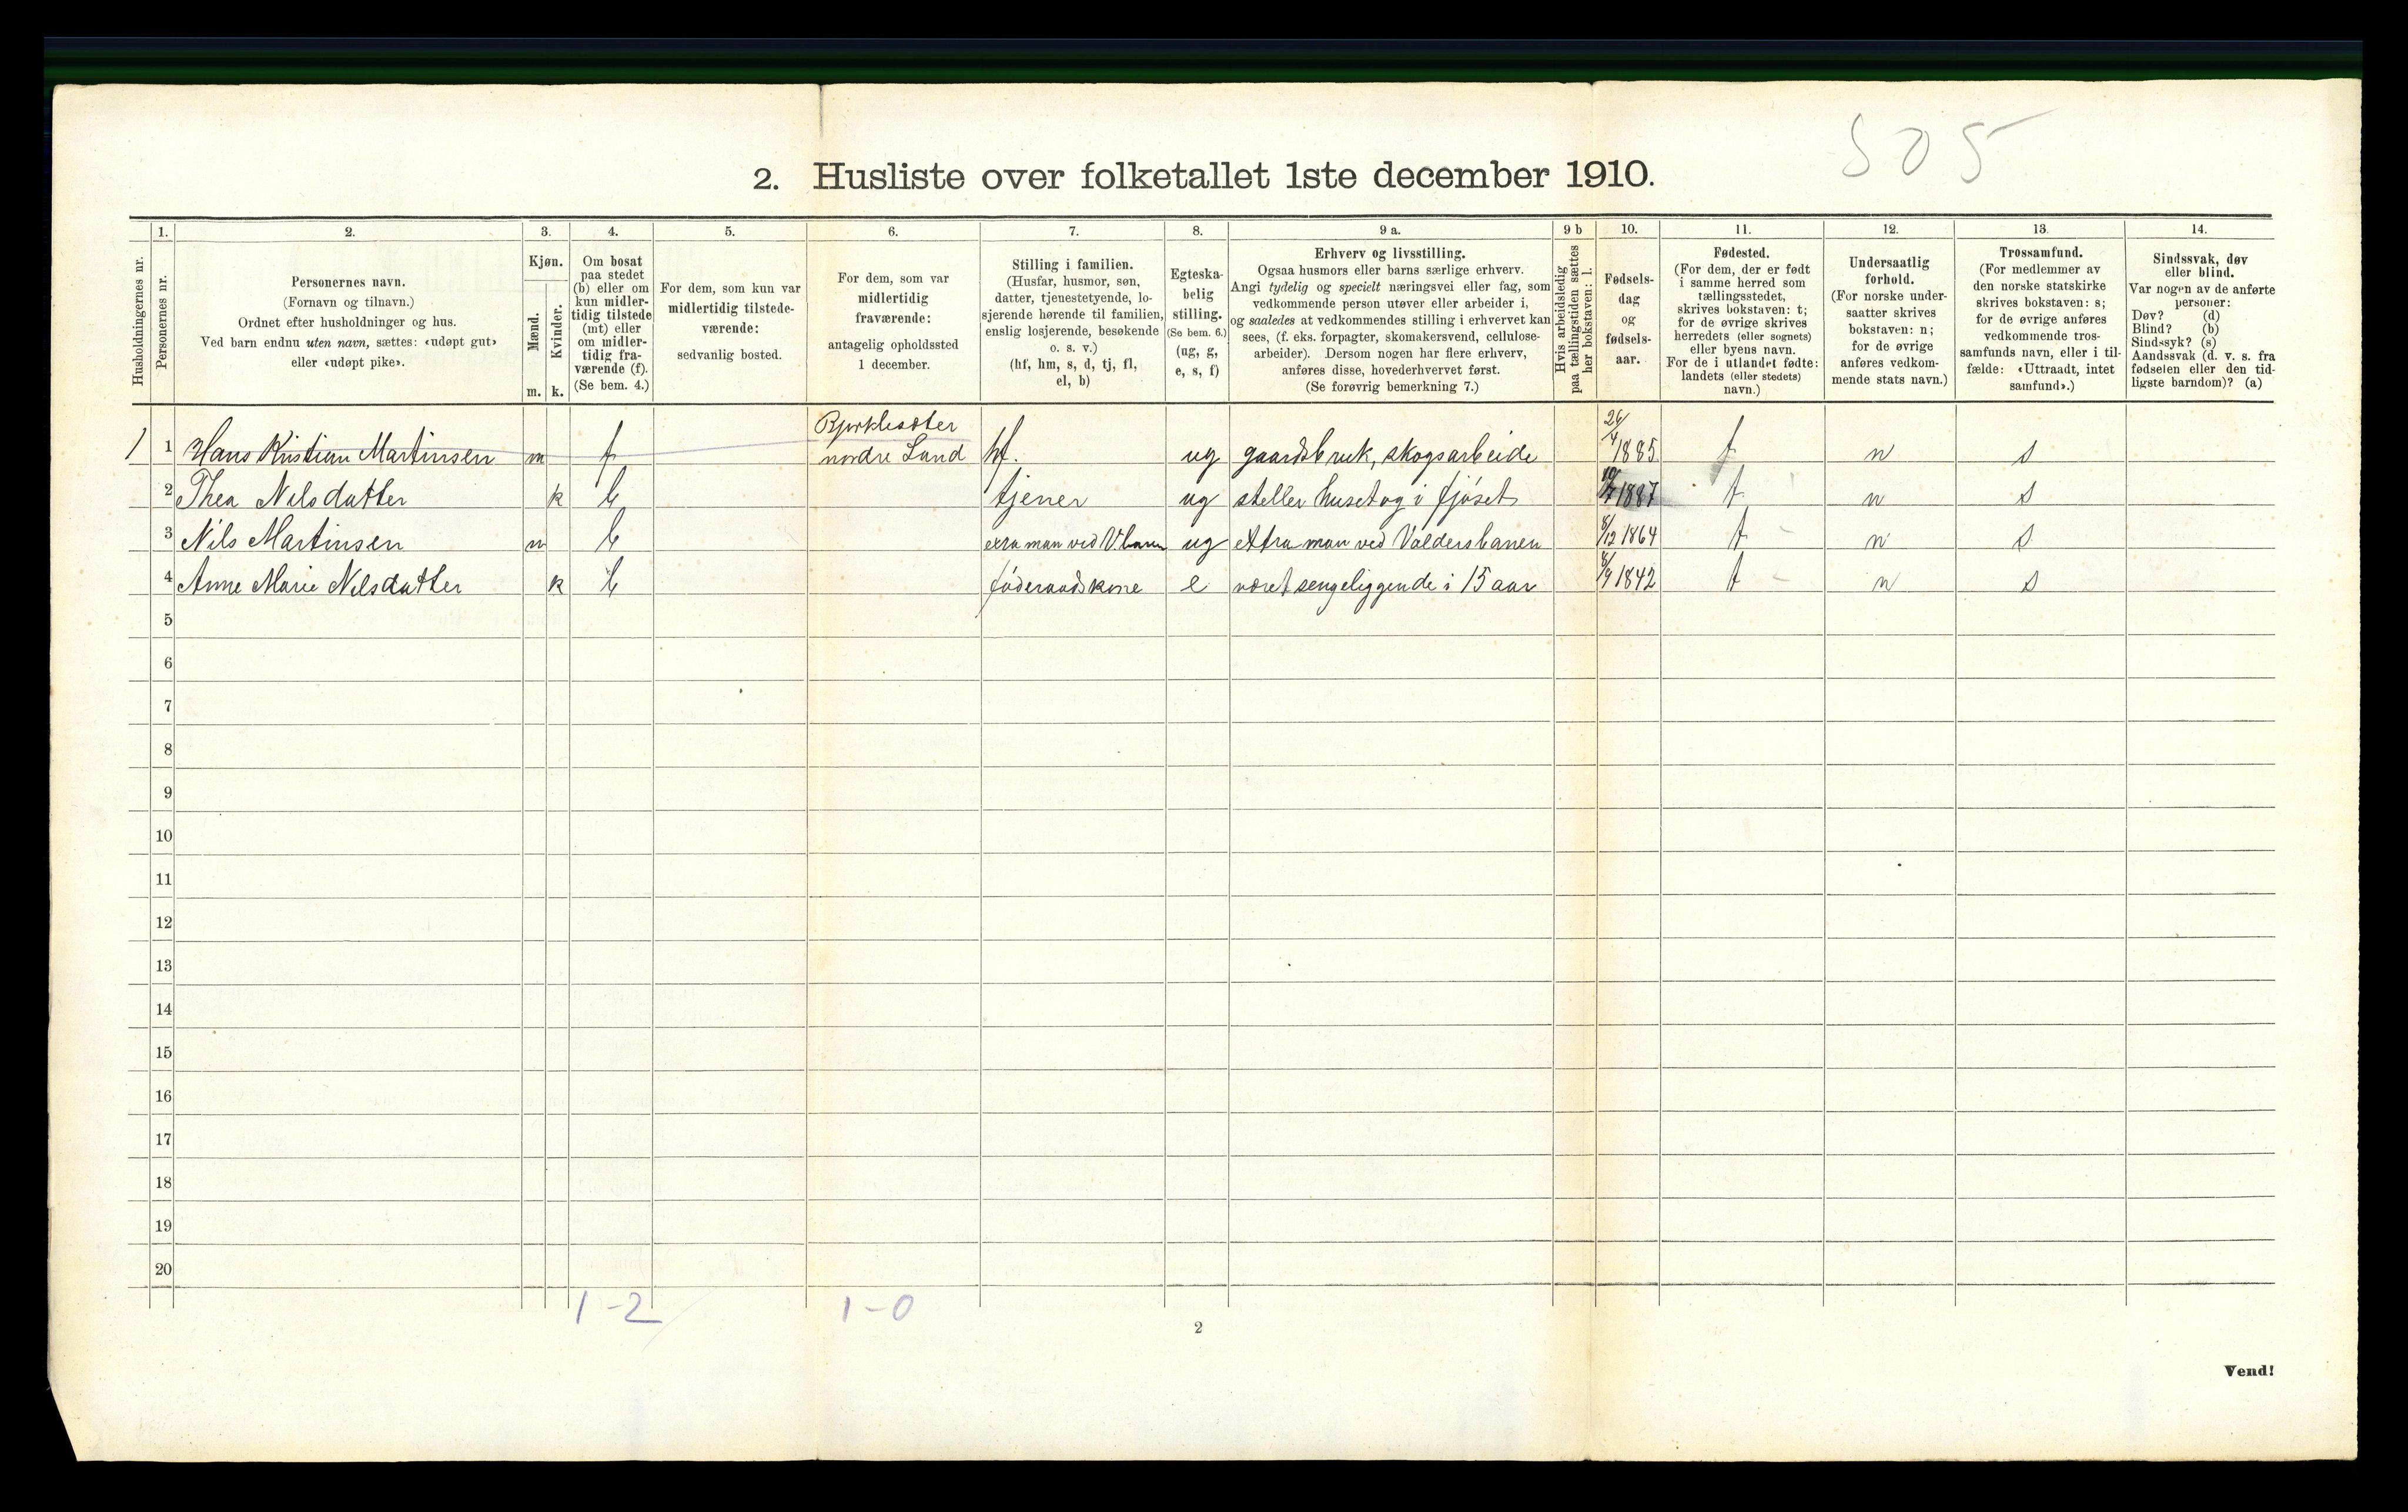 505
2. Husliste over folketallet 1ste december 1910.
Husholdningernes nr.
1.
Personernes nr.
2.
Personernes navn.
(Fornavn og tilnavn.)
Ordnet efter husholdninger og hus.
Ved barn endnu uten navn, sættes: «udøpt gut»
eller «udøpt pike».
3.
Kjøn.
Mænd.
Kvinder.
m. k.
4.
Om bosat
paa stedet
(b) eller om
kun midler-
tidig tilstede
(mt) eller
om midler-
tidig fra-
værende (f).
(Se bem. 4.)
5.
For dem, som kun var
midlertidig tilstede-
værende:
sedvanlig bosted.
6.
For dem, som var
midlertidig
fraværende:
antagelig opholdssted
1 december.
7.
Stilling i familien.
(Husfar, husmor, søn,
datter, tjenestetyende, lo-
sjerende hørende til familien,
enslig losjerende, besøkende
o. s. v.)
(hf, hm, s, d, tj, fl,
el, b)
8.
Egteska-
belig
stilling.
(Se bem. 6.)
(ug, g,
e, s, f)
9 a.
Erhverv og livsstilling.
Ogsaa husmors eller barns særlige erhverv.
Angi tydelig og specielt næringsvei eller fag, som
vedkommende person utøver eller arbeider i,
og saaledes at vedkommendes stilling i erhvervet kan
sees, (f. eks. forpagter, skomakersvend, cellulose-
arbeider). Dersom nogen har flere erhverv,
anføres disse, hovederhvervet først.
(Se forøvrig bemerkning 7.)
9 b
Hvis arbeidsledig
paa tællingstiden sættes
her bokstaven: l.
10.
Fødsels-
dag
og
fødsels-
aar.
11.
Fødested.
(For dem, der er født
i samme herred som
tællingsstedet,
skrives bokstaven: t;
for de øvrige skrives
herredets (eller sognets)
eller byens navn.
For de i utlandet fødte:
landets (eller stedets)
navn.)
12.
Undersaatlig
forhold.
(For norske under-
saatter skrives
bokstaven: n;
for de øvrige
anføres vedkom-
mende stats navn.)
13.
Trossamfund.
(For medlemmer av
den norske statskirke
skrives bokstaven: s;
for de øvrige anføres
vedkommende tros-
samfunds navn, eller i til-
fælde: «Uttraadt, intet
samfund».)
14.
Sindssvak, døv
eller blind.
Var nogen av de anførte
personer:
Døv? (d)
Blind? (b)
Sindssyk? (s)
Aandssvak (d. v. s. fra
fødselen eller den tid-
ligste barndom)? (a)
1 1 Hans Kristian Martinsen m f nordre Land hf. ug gaardsbruk, skogsarbeide 26/4 1885 t n s
2 Thea Nilsdatter k b tjener ug steller huset og i fjöset 1887 t n s
3 Nils Martinsen m b exra man ved V.banen ug extra man ved Valdersbanen 8/12 1864 t n s
4 Anne Marie Nilsdatter k b föderaadskone e været sengeliggende i 15 aar 1842 t n s
5
6
7
8
9
10
11
12
13
14
15
16
17
18
19
20
1 - 2 1 - 0
2
Vend!